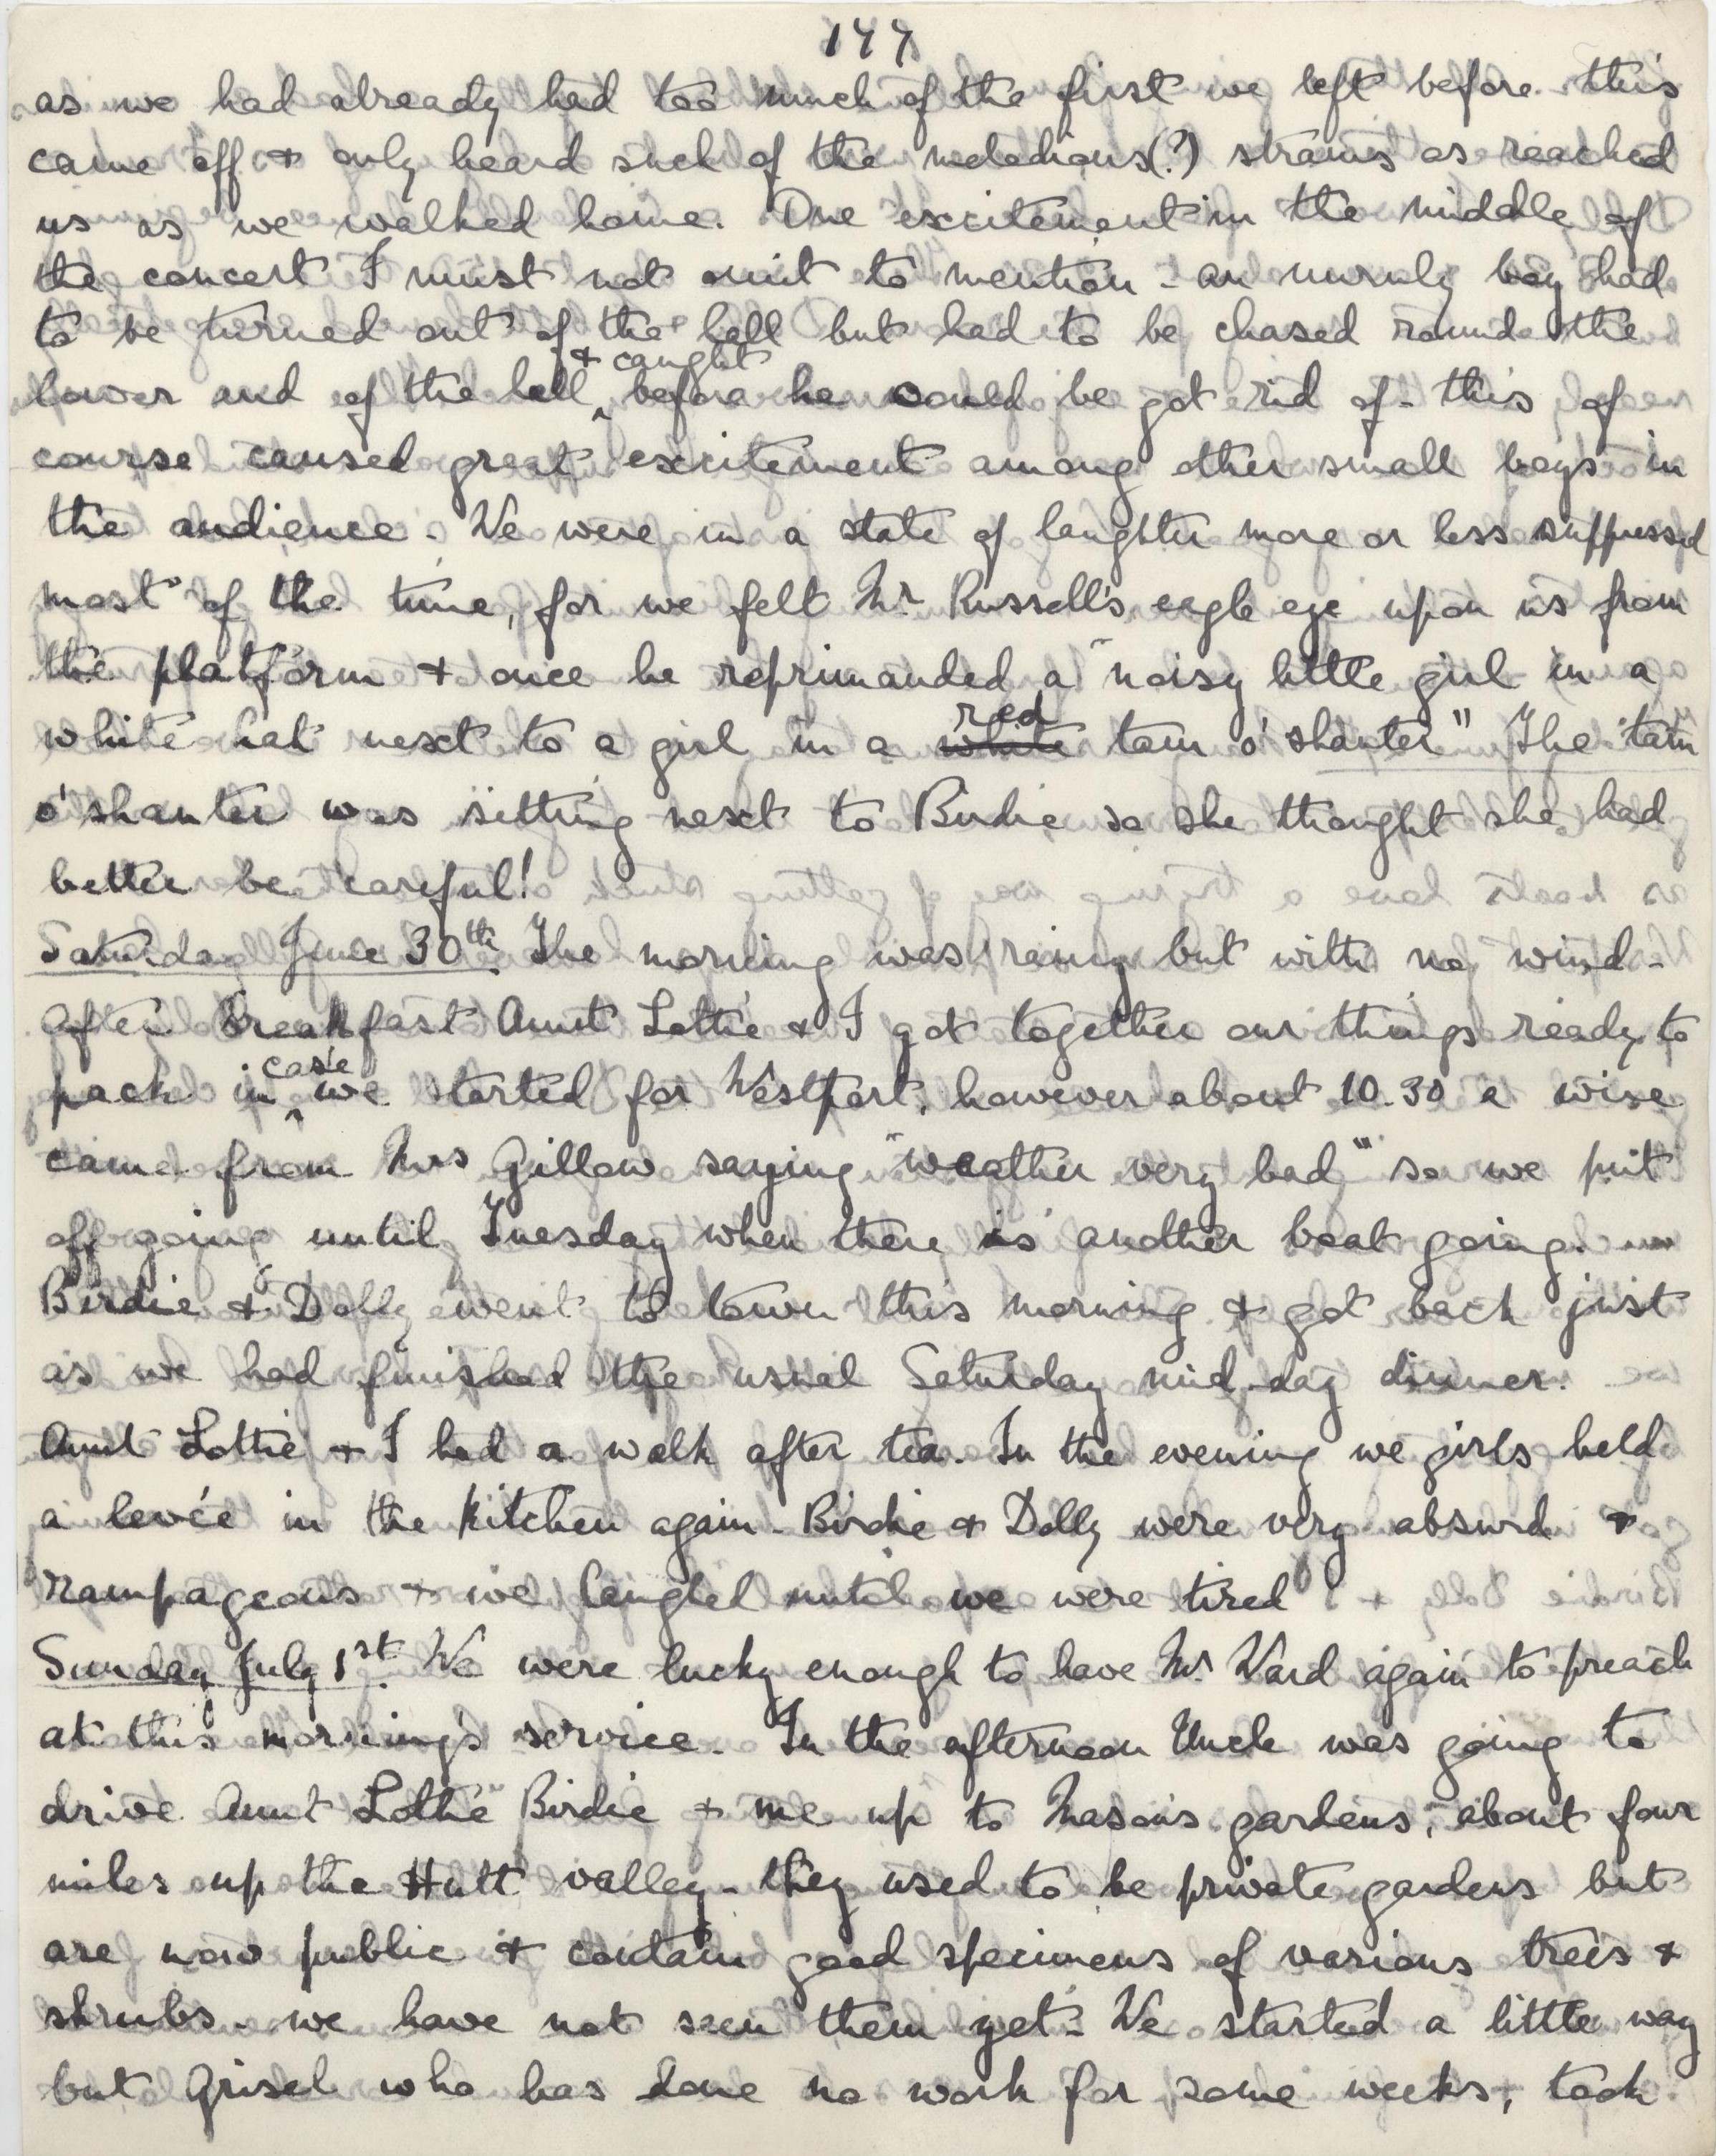 177
as we had already had too much of the first we left before this
came off & only heard such of the melodious(?) strains as reached
us as we walked home. One excitement in the middle of
the concert I must not omit to mention - an unruly boy had
to be turned out of the hall but had to be chased round the
lower end of the hall & caught before he could be got rid of - this of
course caused great excitement among other small boys in
the audience. We were in a state of laughter more or less suppressed
most of the time, for we felt Mr Russell's eagle eye upon us from
the platform & once he reprimanded a "noisy little girl in a
white hat next to a girl in a white red tam o' shanter" The "tam
o' shanter was sitting next to Birdie so she thought she had
better be careful!
Saturday June 30th. The morning was rainy but with no wind -
After Breakfast Aunt Lottie & I got together our things ready to
pack in case we started for Westport, however about 10.30 a wire
came from Mrs Gillow saying "weather very bad" so we put
off going until Tuesday when there is another boat going.
Birdie & Dolly went to town this morning & got back just
as we had finished the usual Saturday mid-day dinner.
Aunt Lottie & I had a walk after tea. In the evening we girls held
a levée in the kitchen again - Birdie & Dolly were very absurd &
rampageous & we laughed until we were tired
Sunday July 1st. We were lucky enough to have Mr Ward again to preach
at this morning's service. In the afternoon Uncle was going to
drive Aunt Lottie Birdie & me up to Mason's gardens, about four
miles up the Hutt valley - they used to be private gardens but
are now public & contain good specimens of various trees &
shrubs - we have not seen them yet - We started a little way
but Grisel who has done no work for some weeks, took